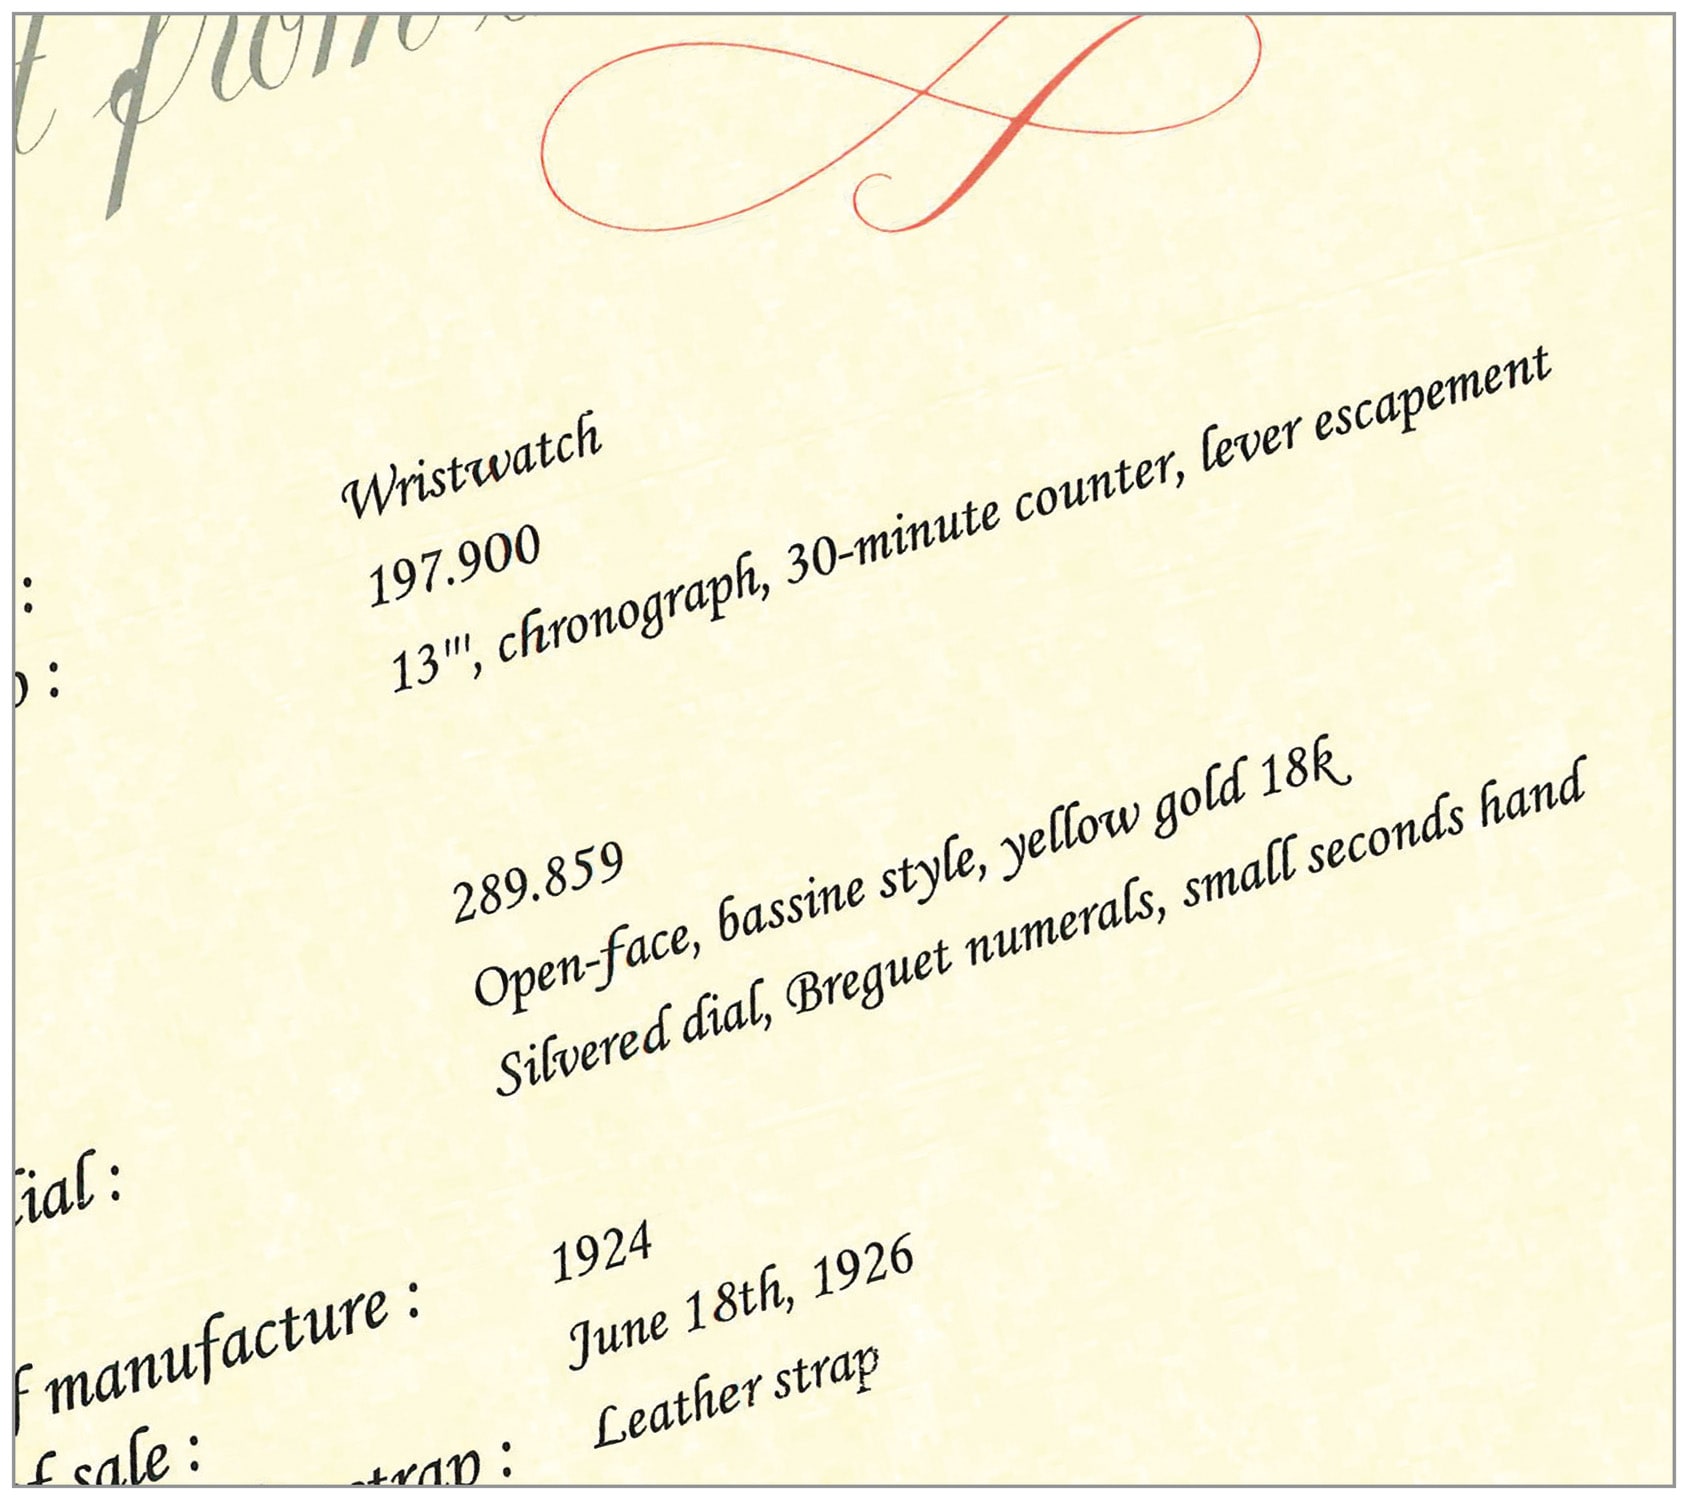 from
Wristwatch
: 197.900
: 13''', chronograph, 30-minute counter, lever escapement
289.859
Open-face, bassine style, yellow gold 18k
Silvered dial, Breguet numerals, small seconds hand
dial :
manufacture : 1924
sale : June 18th, 1926
strap : Leather strap